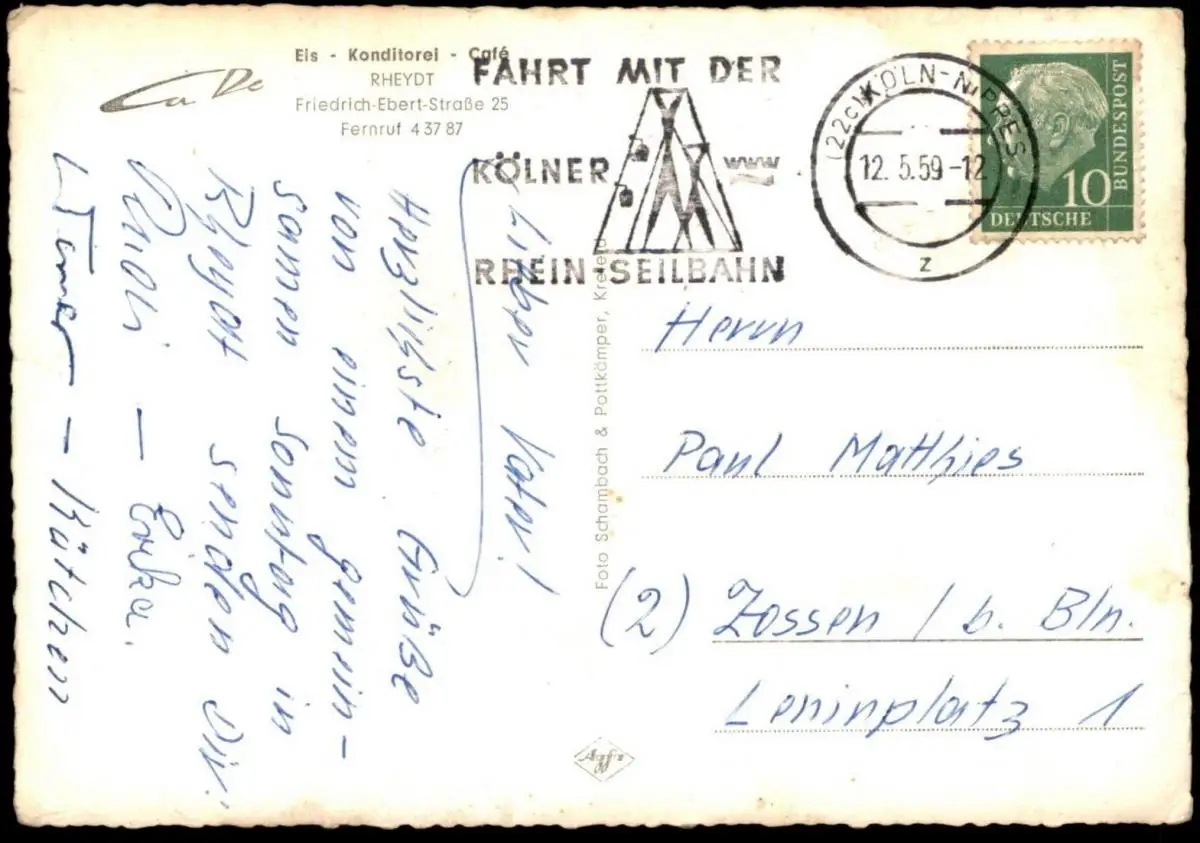 Eis - Konditorei - Café
RHEYDT
Friedrich-Ebert-Straße 25
Fernruf 4 37 87
FAHRT MIT DER
KÖLNER
RHEIN-SEILBAHN
(22c) KÖLN-NIPPES
12. 5. 59 -12
z
10
DEUTSCHE
BUNDESPOST
Lieber Vater!
Herzlichste Grüße
von einem gemein-
samen Sonntag in
Rheydt senden Dir:
Rudi - Erika.
Werner - Kätchen
Foto Schambach & Pottkämper, Krefeld
Herrn
Paul Matthies
(2) Zossen / b. Bln.
Leninplatz 1
Agfa